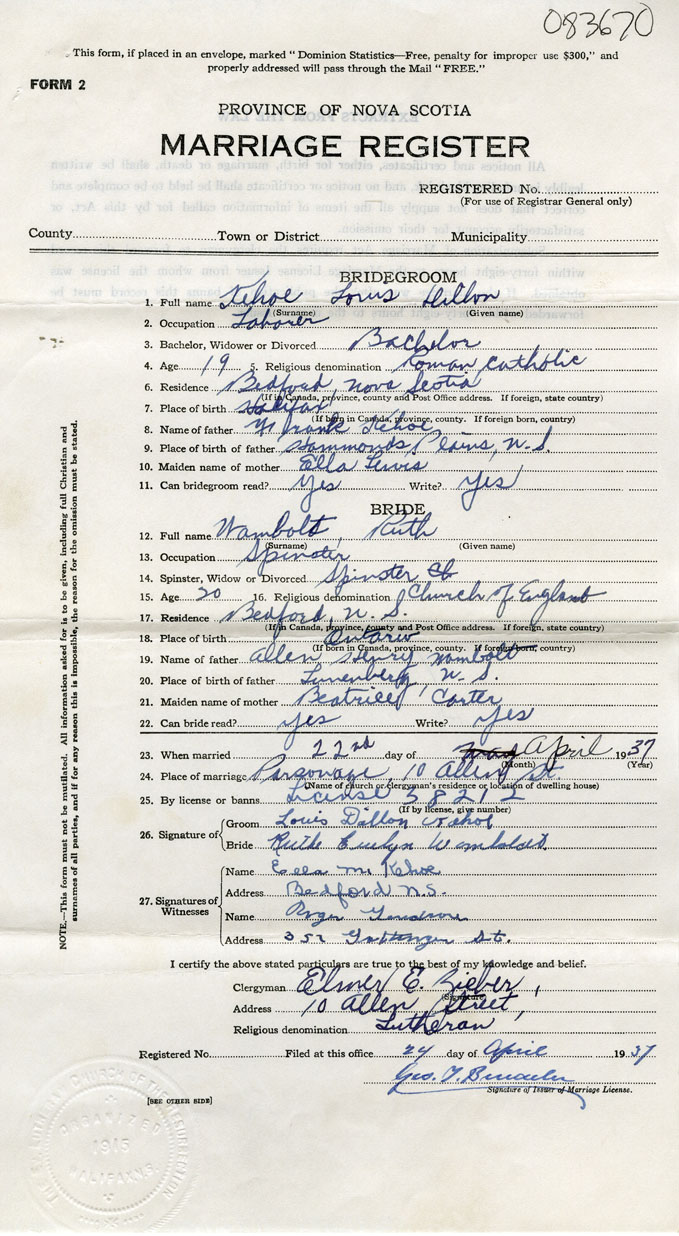 083670
This form, if placed in an envelope, marked "Dominion Statistics—Free, penalty for improper use $300," and
properly addressed will pass through the Mail "FREE."
FORM 2
PROVINCE OF NOVA SCOTIA
MARRIAGE REGISTER
REGISTERED No.
(For use of Registrar General only)
County Town or District Municipality
BRIDEGROOM
1. Full name Kehoe Louis Dillon
(Surname) (Given name)
2. Occupation Laborer
3. Bachelor, Widower or Divorced Bachelor
4. Age 19 5. Religious denomination Roman Catholic
6. Residence Bedford, Nova Scotia
(If in Canada, province, county and Post Office address. If foreign, state country)
7. Place of birth Halifax
(If born in Canada, province, county. If foreign born, country)
8. Name of father Frank Kehoe
9. Place of birth of father Hammonds Plains, N.S.
10. Maiden name of mother Ella Lewis
11. Can bridegroom read? Yes Write? Yes
BRIDE
12. Full name Wambolt, Ruth
(Surname) (Given name)
13. Occupation Spinster
14. Spinster, Widow or Divorced Spinster
15. Age 20 16. Religious denomination Church of England
17. Residence Bedford, N.S.
(If in Canada, province, county and Post Office address. If foreign, state country)
18. Place of birth Ontario
(If born in Canada, province, county. If foreign born, country)
19. Name of father Allen Henry Wambolt
20. Place of birth of father Lunenberg, N.S.
21. Maiden name of mother Beatrice Carter
22. Can bride read? Yes Write? Yes
23. When married 22nd day of May April 1937
(Month) (Year)
24. Place of marriage Parsonage, 10 Allen St.
(Name of church or clergyman's residence or location of dwelling house)
25. By license or banns License 38212
(If by license, give number)
26. Signature of
Groom Louis Dillon Kehoe
Bride Ruth Evelyn Wambolt
27. Signatures of Witnesses
Name Ella M. Kehoe
Address Bedford N.S.
Name Roger
Address 352 Gottingen St.
I certify the above stated particulars are true to the best of my knowledge and belief.
Clergyman Elmer E. Bieber,
(Signature)
Address 10 Allen Street,
Religious denomination Lutheran
Registered No. Filed at this office 24 day of April 1937
Geo. T.
Signature of Issuer of Marriage License.
[SEE OTHER SIDE]
NOTE.—This form must not be mutilated. All information asked for is to be given, including full Christian and
surnames of all parties, and if for any reason this is impossible, the reason for the omission must be stated.
ORGANIZED
1915
HALIFAX N.S.